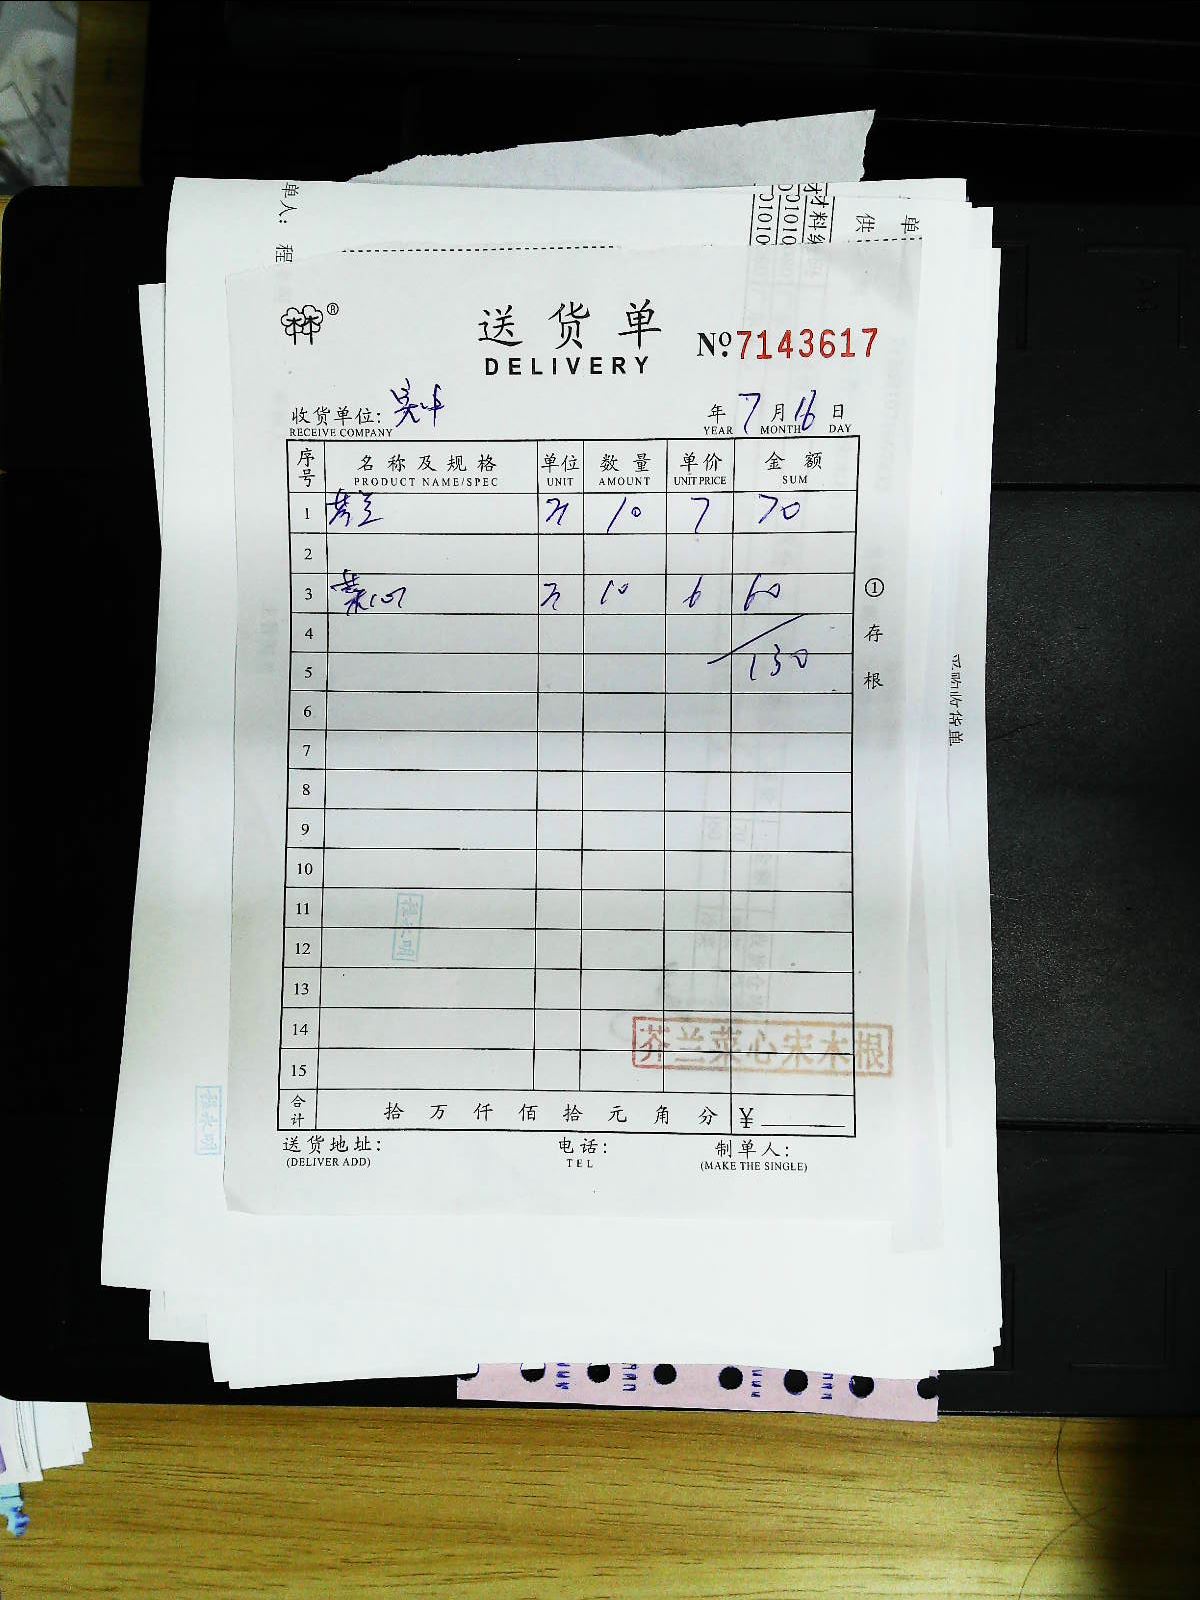 单人: 程
材料编
01010
01010
单
供
送货单
DELIVERY
Nº 7143617
收货单位:
RECEIVE COMPANY
年 7 月 16 日
YEAR MONTH DAY
序号 名称及规格 单位 数量 单价 金额
PRODUCT NAME/SPEC UNIT AMOUNT UNIT PRICE SUM
1 芥兰 斤 10 7 70
2
3 菜心 斤 10 6 60
4
5 130
6
7
8
9
10
11
12
13
14
15
① 存根
采购收货单
程永明
芥兰菜心宋木根
程永明
合计 拾 万 仟 佰 拾 元 角 分 ¥
送货地址: 电话: 制单人:
(DELIVER ADD) TEL (MAKE THE SINGLE)